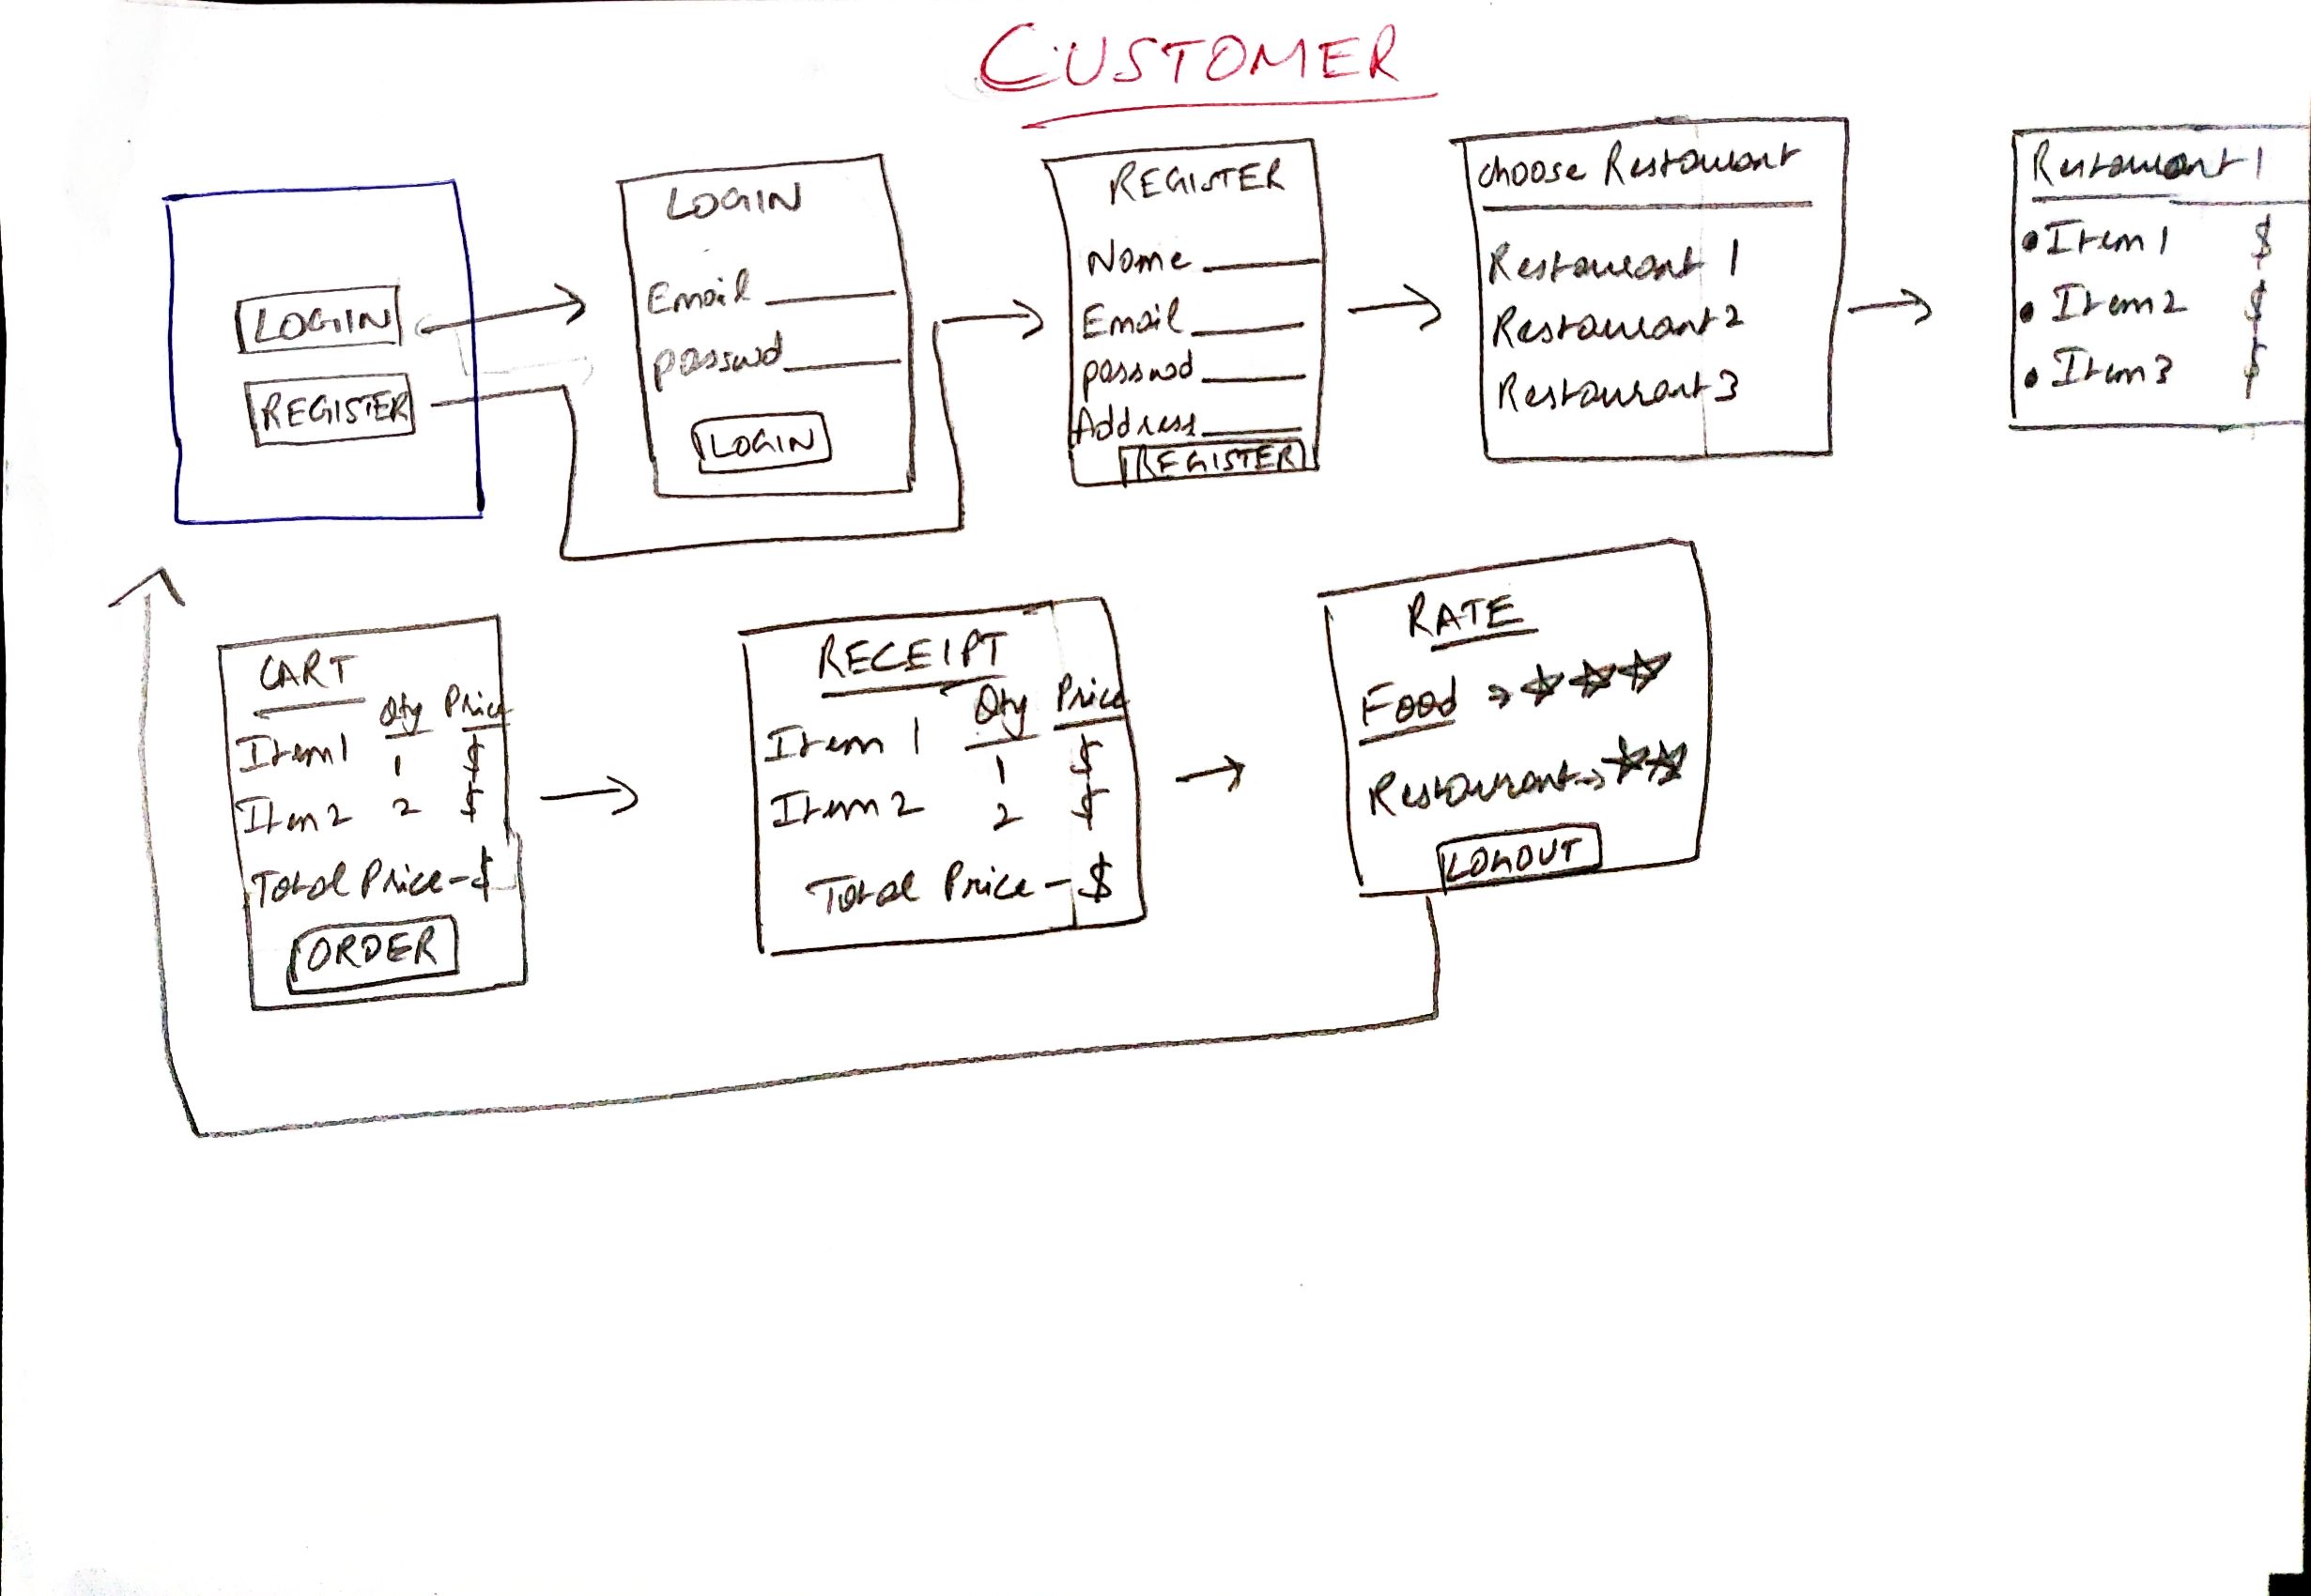 CUSTOMER
LOGIN
REGISTER
LOGIN
Email
passwd
LOGIN
REGISTER
Name
Email
passwd
Address
REGISTER
choose Restaurant
Restaurant 1
Restaurant 2
Restaurant 3
Restaurant 1
• Item 1 $
• Item 2 $
• Item 3 $
CART
Qty Price
Item 1 1 $
Item 2 2 $
Total Price - $
ORDER
RECEIPT
Qty Price
Item 1 1 $
Item 2 2 $
Total Price - $
RATE
Food → ★★★
Restaurant → ★★
LOGOUT